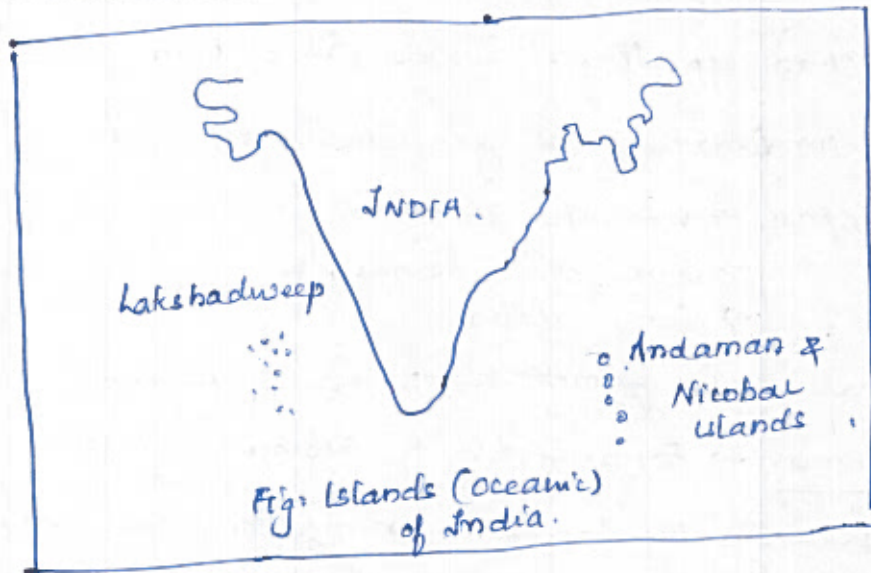 INDIA.
Lakshadweep
Andaman &
Nicobar
islands.
Fig: Islands (oceanic)
of India.